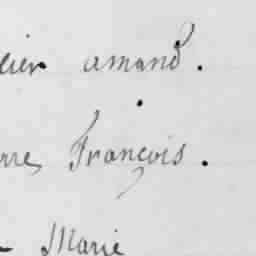 lier amand.
rre François.
Marie